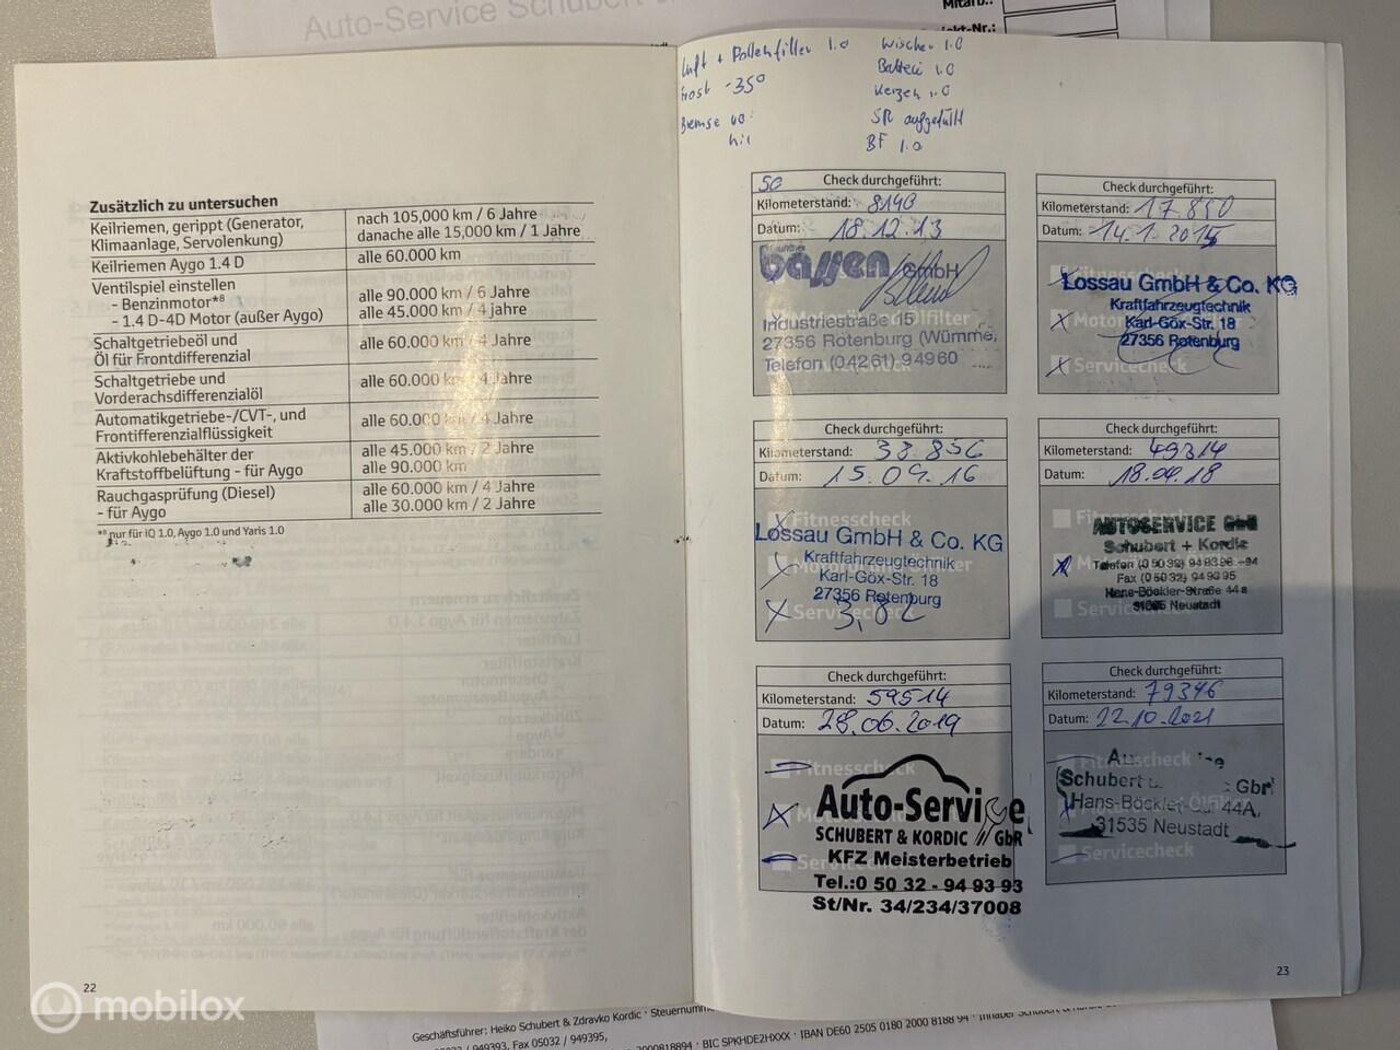 Auto-Service Schubert
Mitarb.:
Luft + Pollenfilter i.O
Frost -35°
Bremse vo:
hi:
Wischer i.O
Batterie i.O
Kerzen i.O
SR aufgefüllt
BF i.O
Zusätzlich zu untersuchen
Keilriemen, gerippt (Generator,
Klimaanlage, Servolenkung)
nach 105,000 km / 6 Jahre
danache alle 15,000 km / 1 Jahre
Keilriemen Aygo 1.4 D
alle 60.000 km
Ventilspiel einstellen
- Benzinmotor*⁸
- 1.4 D-4D Motor (außer Aygo)
alle 90.000 km / 6 Jahre
alle 45.000 km / 4 jahre
Schaltgetriebeöl und
Öl für Frontdifferenzial
alle 60.000 km / 4 Jahre
Schaltgetriebe und
Vorderachsdifferenzialöl
alle 60.000 km / 4 Jahre
Automatikgetriebe-/CVT-, und
Frontifferenzialflüssigkeit
alle 60.000 km / 4 Jahre
Aktivkohlebehälter der
Kraftstoffbelüftung - für Aygo
alle 45.000 km / 2 Jahre
alle 90.000 km
Rauchgasprüfung (Diesel)
- für Aygo
alle 60.000 km / 4 Jahre
alle 30.000 km / 2 Jahre
*⁸ nur für iQ 1.0, Aygo 1.0 und Yaris 1.0
22
Check durchgeführt:
Kilometerstand: 8140
Datum: 18.12.13
bassen GmbH
Industriestraße 15
27356 Rotenburg (Wümme)
Telefon (04261) 94960
Check durchgeführt:
Kilometerstand: 17.850
Datum: 14.1.2015
Fitnesscheck
Lossau GmbH & Co. KG
Kraftfahrzeugtechnik
Karl-Göx-Str. 18
27356 Rotenburg
X
X Servicecheck
Check durchgeführt:
Kilometerstand: 33.856
Datum: 15.04.16
Fitnesscheck
Lossau GmbH & Co. KG
Kraftfahrzeugtechnik
Karl-Göx-Str. 18
27356 Rotenburg
X Servicecheck
3,8 L
Check durchgeführt:
Kilometerstand: 49314
Datum: 18.04.18
Fitnesscheck
AUTOSERVICE GbR
Schubert + Kordic
Fax (05032) 949395
Hans-Böckler-Straße 44a
31535 Neustadt
Servicecheck
Check durchgeführt:
Kilometerstand: 59514
Datum: 28.06.2019
Fitnesscheck
Auto-Service
SCHUBERT & KORDIC GbR
KFZ Meisterbetrieb
Tel.:0 50 32 - 94 93 93
St/Nr. 34/234/37008
Check durchgeführt:
Kilometerstand: 79346
Datum: 22.10.2021
Fitnesscheck
Schubert GbR
Hans-Böckler-Str. 44A,
31535 Neustadt
Servicecheck
23
mobilox
Geschäftsführer: Heiko Schubert & Zdravko Kordic
949393, Fax 05032 / 949395,
BIC SPKHDE2HXXX · IBAN DE60 2505 0180 2000 8188 94